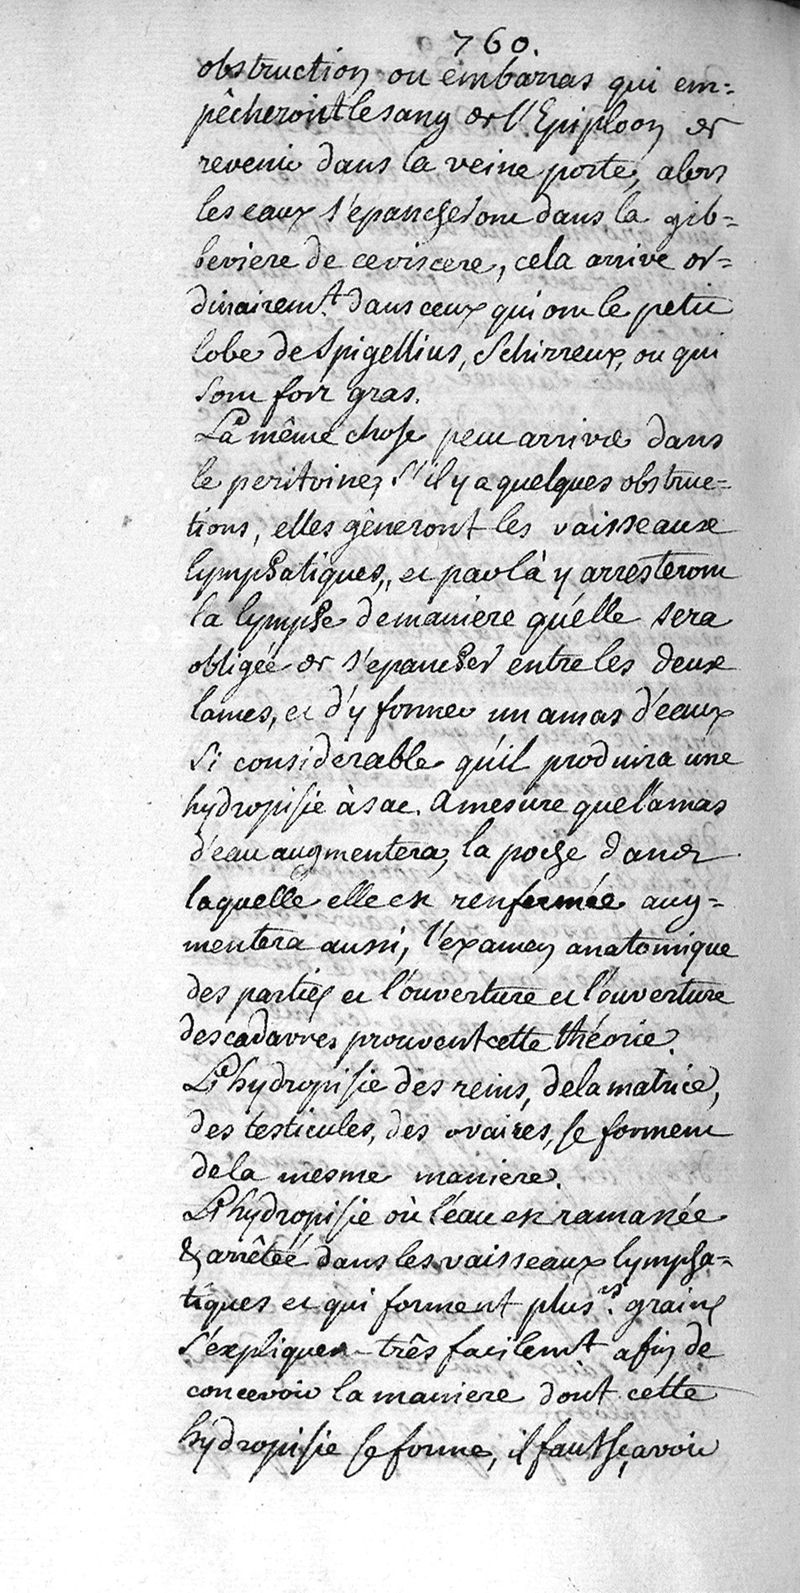 760.
obstruction ou embarras qui em=
pêcheroit le sang de l'Epiploon de
revenir dans la veine porte, alors
les eaux s'epancheront dans la gib=
beciere de ce viscere, cela arrive or=
dinairemt. dans ceux qui ont le petit
lobe de Spigellius, Schirreux, ou qui
sont fort gras.
La même chose peut arriver dans
le peritoine, s'il y a quelques obstruc=
tions, elles gêneront les vaisseaux
lymphatiques, et par là y arresteront
la lymphe de maniere qu'elle sera
obligée de s'epancher entre les deux
lames, et d'y former un amas d'eaux
si considerable qu'il produira une
hydropisie à sac. A mesure que l'amas
d'eau augmentera, la poche dans
laquelle elle est renfermée aug=
mentera aussi, l'examen anatomique
des parties et l'ouverture et l'ouverture
des cadavres prouvent cette théorie.
L'hydropisie des reins, de la matrice,
des testicules, des ovaires, se forment
de la mesme maniere.
L'hydropisie où l'eau est ramassée
& arrêtée dans les vaisseaux lympha=
tiques et qui forment plusrs. grains
s'expliquent très facilemt afin de
concevoir la maniere dont cette
hydropisie se forme, il faut sçavoir